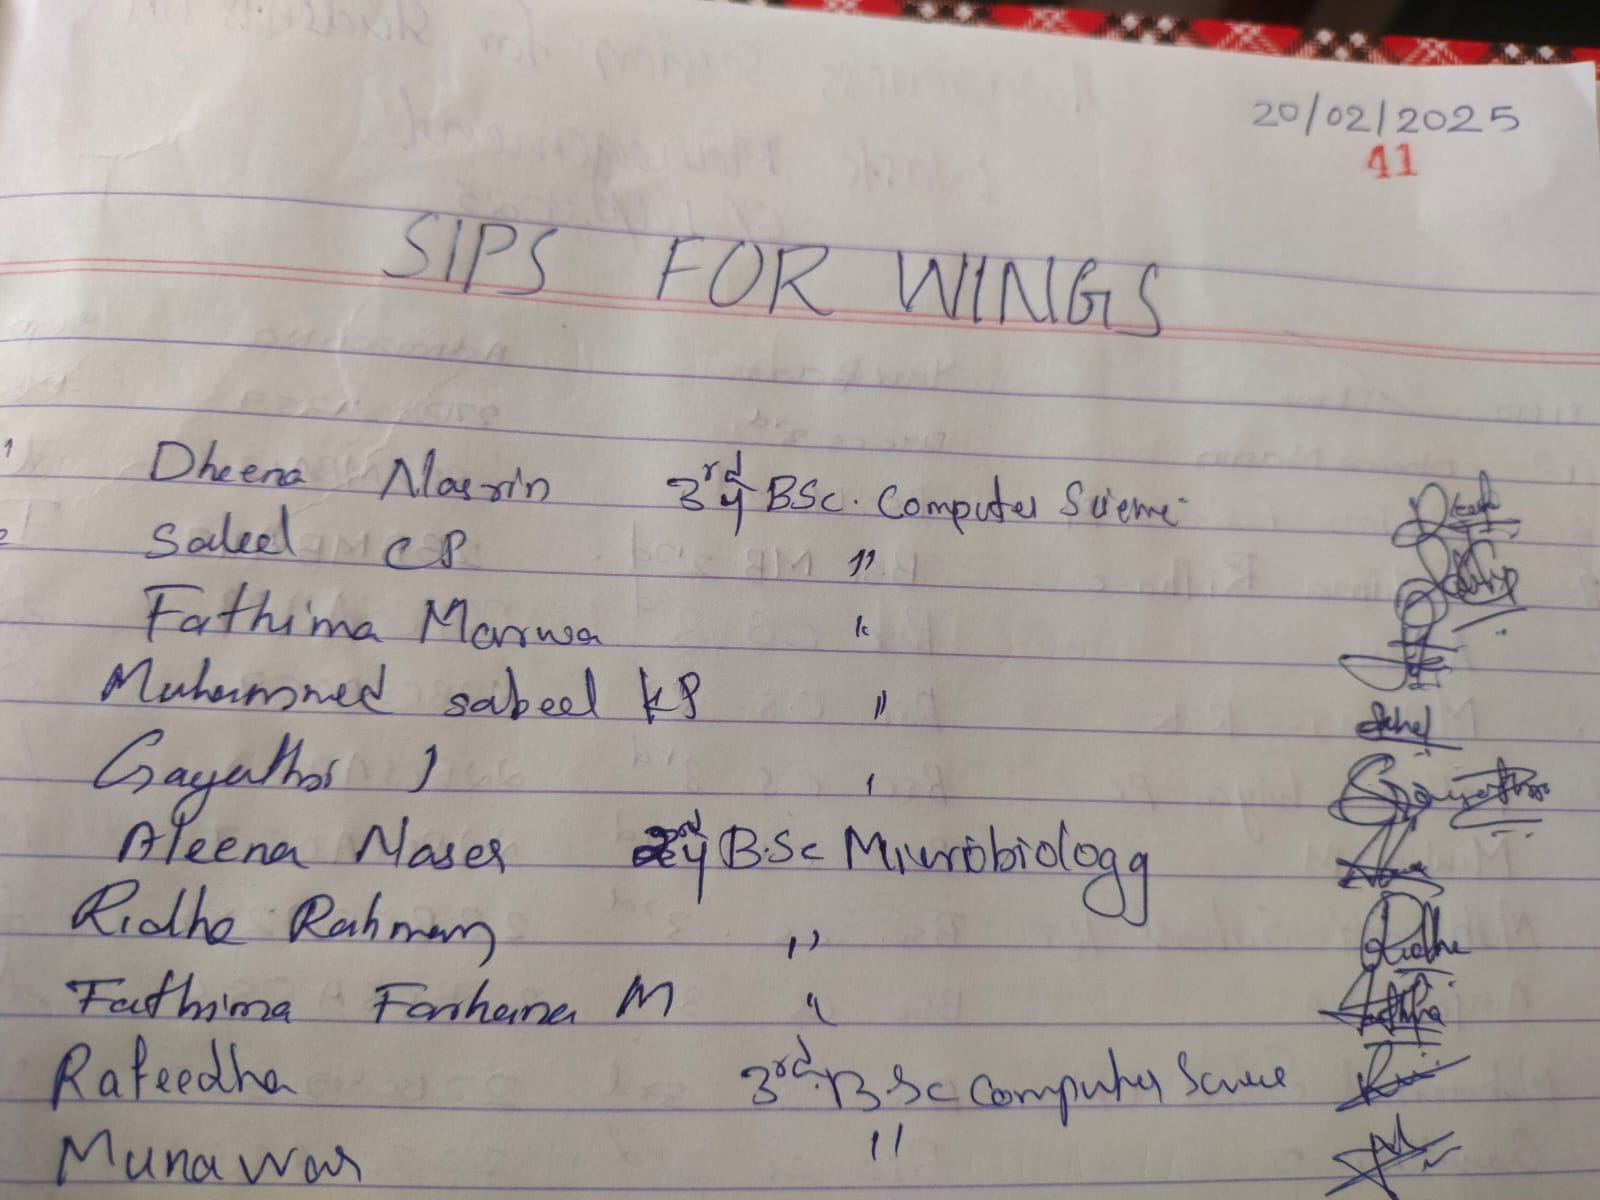 20/02/2025
41
SIPS FOR WINGS
1 Dheena Nasrin 3rd y BSc. Computer Science
2 Saleel CP "
Fathima Marwa "
Muhammed sabeel KP "
Gayathri J "
Aleena Naser 2nd y B.Sc Microbiology
Ridha Rahman " Ridha
Fathima Farhana M "
Rafeedha 3rd B.Sc Computer Science
Munawar "